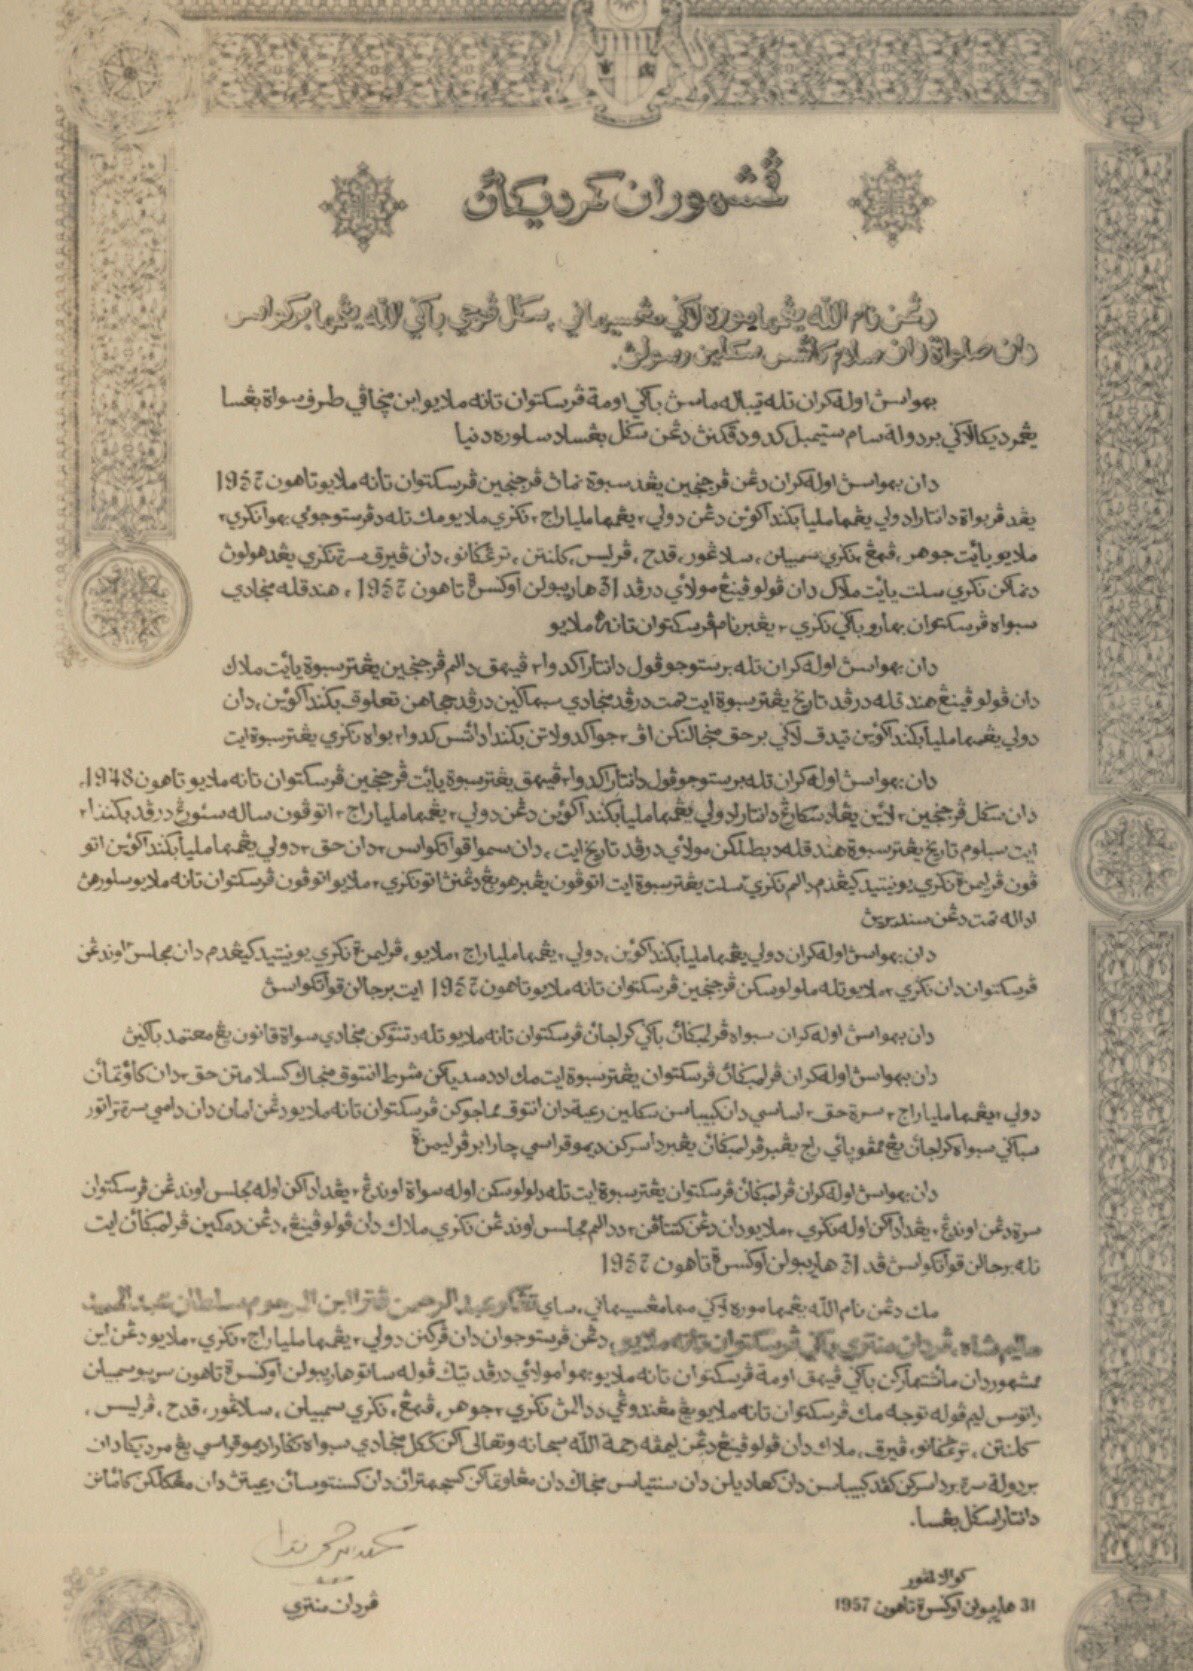 ڤمشهوران کمرديکاءن
دڠن نام الله يڠمها موره لاݢي مڠسيهاني، سݢل ڤوجي باݢي الله يڠمها برکواس
دان صلواة دان سلام کأتس سکلين رسولڽ.
بهواسڽ اوله کران تله تيباله ماسڽ باݢي اومة ڤرسکتوان تانه ملايو اين منچاڤي طرف سواة بڠسا
يڠمرديکا لاݢي بردولة سام ستيمبل کدودقکنڽ دڠن سݢل بڠسا دسلوره دنيا
دان بهواسڽ اوله کران دڠن ڤرجنجين يڠدسبوة نماڽ ڤرجنجين ڤرسکتوان تانه ملايو تاهون 1957
يڠدڤربواة دانتارا دولي يڠمها مليا بݢندا کوئين دڠن دولي٢ يڠمها مليا راج٢ نݢري ملايو مك تله دڤرستوجوئي بهوا نݢري٢
ملايو يائيت جوهر، ڤهڠ، نݢري سمبيلن، سلاڠور، قدح، ڤرليس، کلنتن، ترڠݢانو، دان ڤيرق سرت نݢري يڠدهولوڽ
دنماکن نݢري سلت يائيت ملاک دان ڤولو ڤينڠ مولائي درڤد 31 هاريبولن اوݢسة تاهون 1957، هندقله منجادي
سبواه ڤرسکتوان بهارو باݢي نݢري٢ يڠبرنام ڤرسکتوان تانه ملايو
دان بهواسڽ اوله کران تله برستوجو ڤول دانتارا کدوا٢ ڤيهق دالم ڤرجنجين يڠترسبوة يائيت ملاک
دان ڤولو ڤينڠ هندقله درڤد تاريخ يڠترسبوة ايت تمت درڤد منجادي سبهاݢين درڤد جهاهن تعلوق بݢندا کوئين، دان
دولي يڠمها مليا بݢندا کوئين تيدق لاݢي برحق منجالنکن اڤ٢ جوا کدولاتن بݢندا دأتس کدوا٢ بواه نݢري يڠترسبوة ايت
دان بهواسڽ اوله کران تله برستوجو ڤول دانتارا کدوا٢ ڤيهق يڠترسبوة يائيت ڤرجنجين ڤرسکتوان تانه ملايو تاهون 1948،
دان سݢل ڤرجنجين٢ لائين يڠاد سکارڠ دانتارا دولي يڠمها مليا بݢندا کوئين دڠن دولي٢ يڠمها مليا راج٢ اتوڤون ساله سئورڠ درڤد بݢندا٢
ايت سبلوم تاريخ يڠترسبوة هندقله دبطلکن مولائي درڤد تاريخ ايت، دان سموا قوات کواس٢ دان حق٢ دولي يڠمها مليا بݢندا کوئين اتو
ڤون ڤرليمن نݢري يونيتيد کيڠدم دالم نݢري٢ سلت يڠترسبوة ايت اتوڤون يڠبرهوبڠ دڠنڽ اتو نݢري٢ ملايو اتوڤون ڤرسکتوان تانه ملايو سلوروهڽ
اداله تمت دڠن سنديريڽ
دان بهواسڽ اوله کران دولي يڠمها مليا بݢندا کوئين، دولي٢ يڠمها مليا راج٢ ملايو، ڤرليمن نݢري يونيتيد کيڠدم دان مجلس٢ اوندڠن
ڤرسکتوان دان نݢري٢ ملايو تله ملولوسکن ڤرجنجين ڤرسکتوان تانه ملايو تاهون 1957 ايت برجالن قوات کواسڽ
دان بهواسڽ اوله کران سبواه ڤرلمبݢاءن باݢي کراجاءن ڤرسکتوان تانه ملايو تله دتنتوکن منجادي سواة قانون يڠ معتمد باݢيڽ
دان بهواسڽ اوله کران ڤرلمبݢاءن ڤرسکتوان يڠترسبوة ايت مك اد دسدياکن شرط انتوق منجاݢ کسلامتن حق٢ دان کأوتماءن
دولي٢ يڠمها مليا راج٢ سرة حق٢ اساسي دان کبيباسن سکلين رعية دان انتوق مماجوکن ڤرسکتوان تانه ملايو دڠن امان دان دامي سرة تراتور
سباݢي سبواه کراجاءن يڠ ممڤوڽائي راج يڠبرڤرلمبݢاءن يڠبرداسرکن ديموقراسي چارا برڤرليمن
دان بهواسڽ اوله کران ڤرلمبݢاءن ڤرسکتوان يڠترسبوة ايت تله دلولوسکن اوله سواة اوندڠ٢ يڠداداکن اوله مجلس اوندڠن ڤرسکتوان
سرة دڠن اوندڠ٢ يڠداداکن اوله نݢري٢ ملايو دان دڠن کتتاڤن٢ ددالم مجلس اوندڠن نݢري ملاک دان ڤولو ڤينڠ، دڠن دمکين ڤرلمبݢاءن ايت
تله برجالن قوات کواسڽ ڤد 31 هاريبولن اوݢسة تاهون 1957
مك دڠن نام الله يڠمها موره لاݢي مها مڠسيهاني، ساي تڠکو عبد الرحمن ڤترا ابن المرحوم سلطان عبد الحميد
حاليم شاه، ڤردان منتري باݢي ڤرسکتوان تانه ملايو، دڠن ڤرستوجوان دان ڤرکنن دولي٢ يڠمها مليا راج٢ نݢري٢ ملايو دڠن اين
ممشهوردان مڠأشتهارکن باݢي ڤيهق اومة ڤرسکتوان تانه ملايو بهوا مولائي درڤد تيݢ ڤوله ساتو هاريبولن اوݢسة تاهون سريبو سمبيلن
راتوس ليم ڤوله توجه مك ڤرسکتوان تانه ملايو يڠ مڠندوڠي ددالمڽ نݢري٢ جوهر، ڤهڠ، نݢري سمبيلن، سلاڠور، قدح، ڤرليس،
کلنتن، ترڠݢانو، ڤيرق، ملاک دان ڤولو ڤينڠ دڠن ليمڤه رحمة الله سبحانه وتعالى اکن ککل منجادي سبواه نݢارا ديموقراسي يڠ مرديکا دان
بردولة سرة برداسرکن کڤد کبيباسن دان کعاديلن دان سنتياس منجاݢ دان مڠأوتماکن کسجهتراءن دان کسنتوساءن رعيتڽ دان مڠکلکن کأمانن
دانتارا سݢل بڠسا.
ڤردان منتري
کوالا لمڤور
31 هاريبولن اوݢسة تاهون 1957